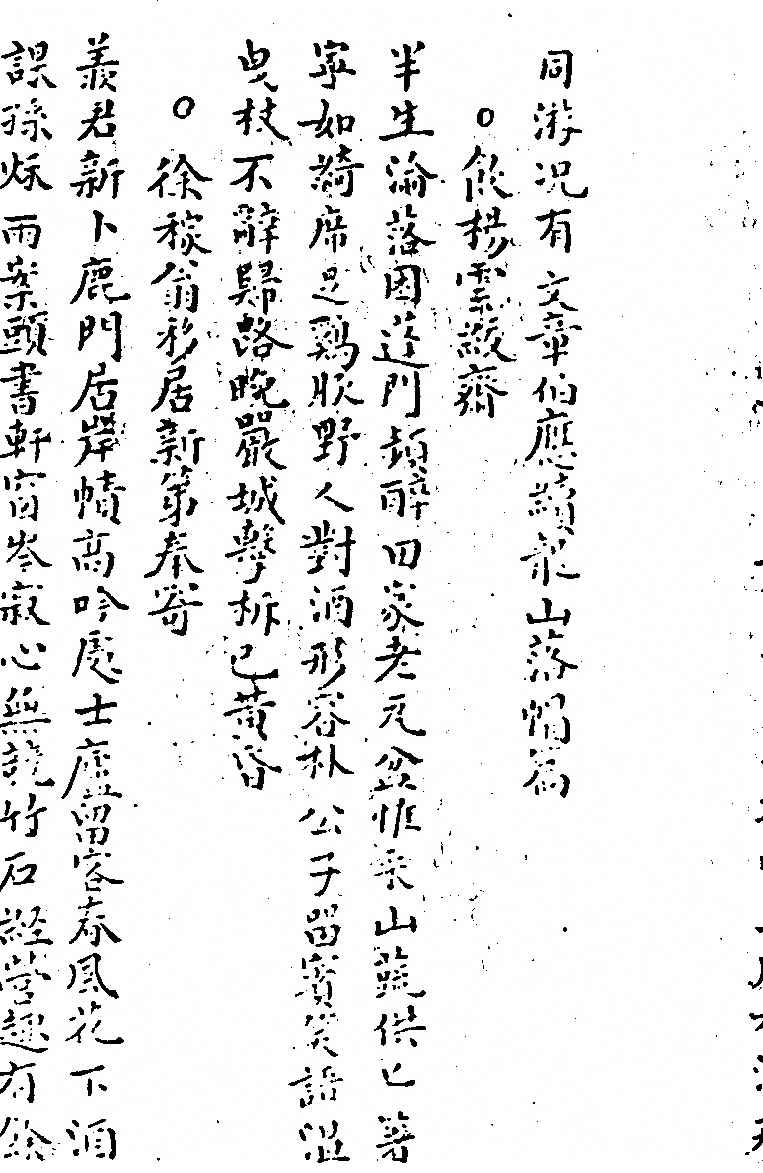 同游况有文章伯應續龍山落帽篇
○飲楊雲溆齋
半生淪落困蓬門頻醉田家老瓦盆惟乘山蔬供匕箸
寧如綺席足鷄豚野人對酒形容朴公子留賓笑語溫
曳杖不辭歸路晚嚴城擊柝已黃昏
○徐稼翁移居新第奉寄
羨君新卜鹿門居岸幘高吟處士廬留客春風花下酒
課孫秋雨案頭書軒窗岑寂心無競竹石經營趣有餘